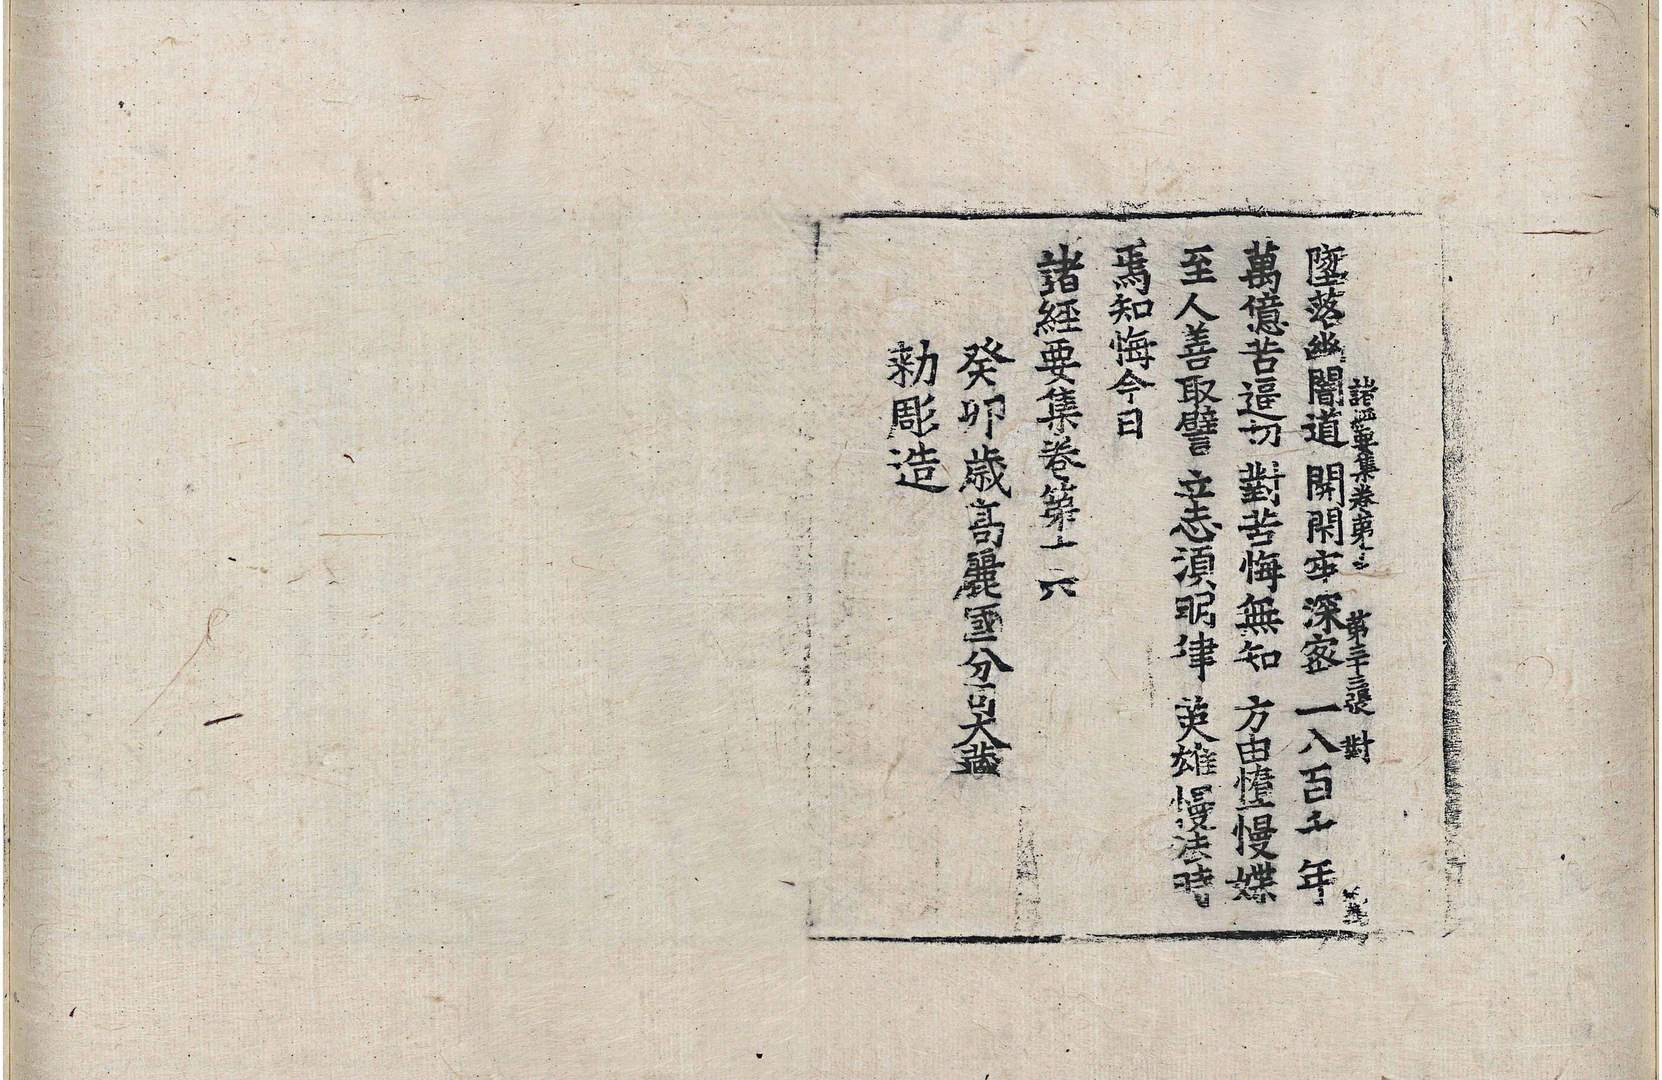 諸經要集卷第十六 第三十三張 對
墜落幽闇道 開閉牢深密 一八百千年
萬億苦逼切 對苦悔無知 方由憍慢媟
至人善取譬 立志須明律 英雄慢法時
焉知悔今日
諸經要集卷第十六
癸卯歲高麗國分司大藏
勅彫造